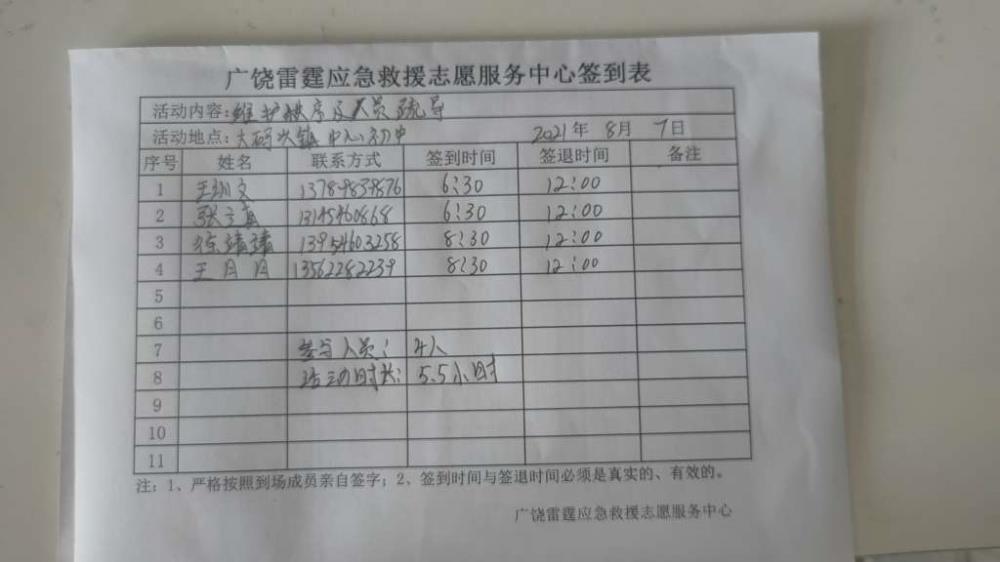 广饶雷霆应急救援志愿服务中心签到表
活动内容:维护秩序及人员疏导
活动地点:大码头镇中心初中 2021年 8月 7日
序号 姓名 联系方式 签到时间 签退时间 备注
1 王训文 13789839876 6:30 12:00
2 张 13145460868 6:30 12:00
3 徐 13954603258 8:30 12:00
4 王月月 13562282239 8:30 12:00
5
6
7 参与人员: 4人
8 活动时长: 5.5小时
9
10
11
注:1、严格按照到场成员亲自签字;2、签到时间与签退时间必须是真实的、有效的。
广饶雷霆应急救援志愿服务中心